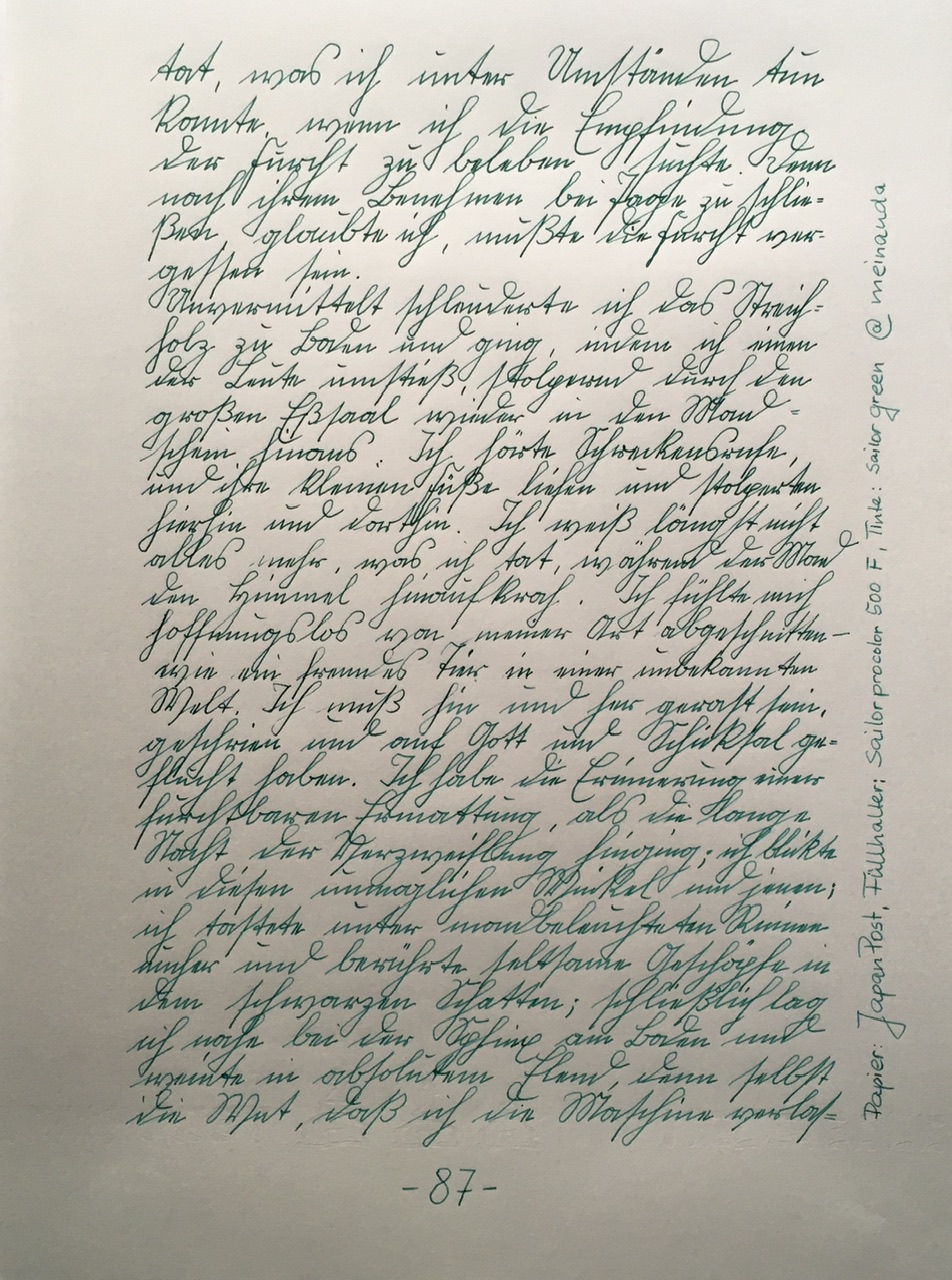 tat, was ich unter Umständen tun
konnte, wenn ich die Empfindung
der Furcht zu beleben suchte. Denn
nach ihrem Benehmen bei Tage zu schlie=
ßen, glaubte ich, mußte die Furcht ver-
gessen sein.
Unvermittelt schleuderte ich das Streich=
holz zu Boden und ging, indem ich einen
der Leute umstieß, stolpernd durch den
großen Eßsaal wieder in den Mond=
schein hinaus. Ich hörte Schreckensrufe,
und ihre kleinen Füße liefen und stolperten
hierhin und dorthin. Ich weiß längst nicht
alles mehr, was ich tat, während der Mond
den Himmel hinaufkroch. Ich fühlte mich
hoffnungslos von meiner Art abgeschnitten –
wie ein fremdes Tier in einer unbekannten
Welt. Ich muß hin und her gerast sein,
geschrien und auf Gott und Schicksal ge=
flucht haben. Ich habe die Erinnerung einer
furchtbaren Ermattung, als die lange
Nacht der Verzweiflung hinging; ich blickte
in diesen unmöglichen Winkel und jenen;
ich tastete unter mondbeleuchteten Ruinen
umher und berührte seltsame Geschöpfe in
dem schwarzen Schatten; schließlich lag
ich nahe bei der Sphinx am Boden und
weinte in absolutem Elend, denn selbst
die Wut, daß ich die Maschine verlas=
- 87 -
Papier: Japan Post, Füllhalter: Sailor procolor 500 F, Tinte: Sailor green @ meinauda